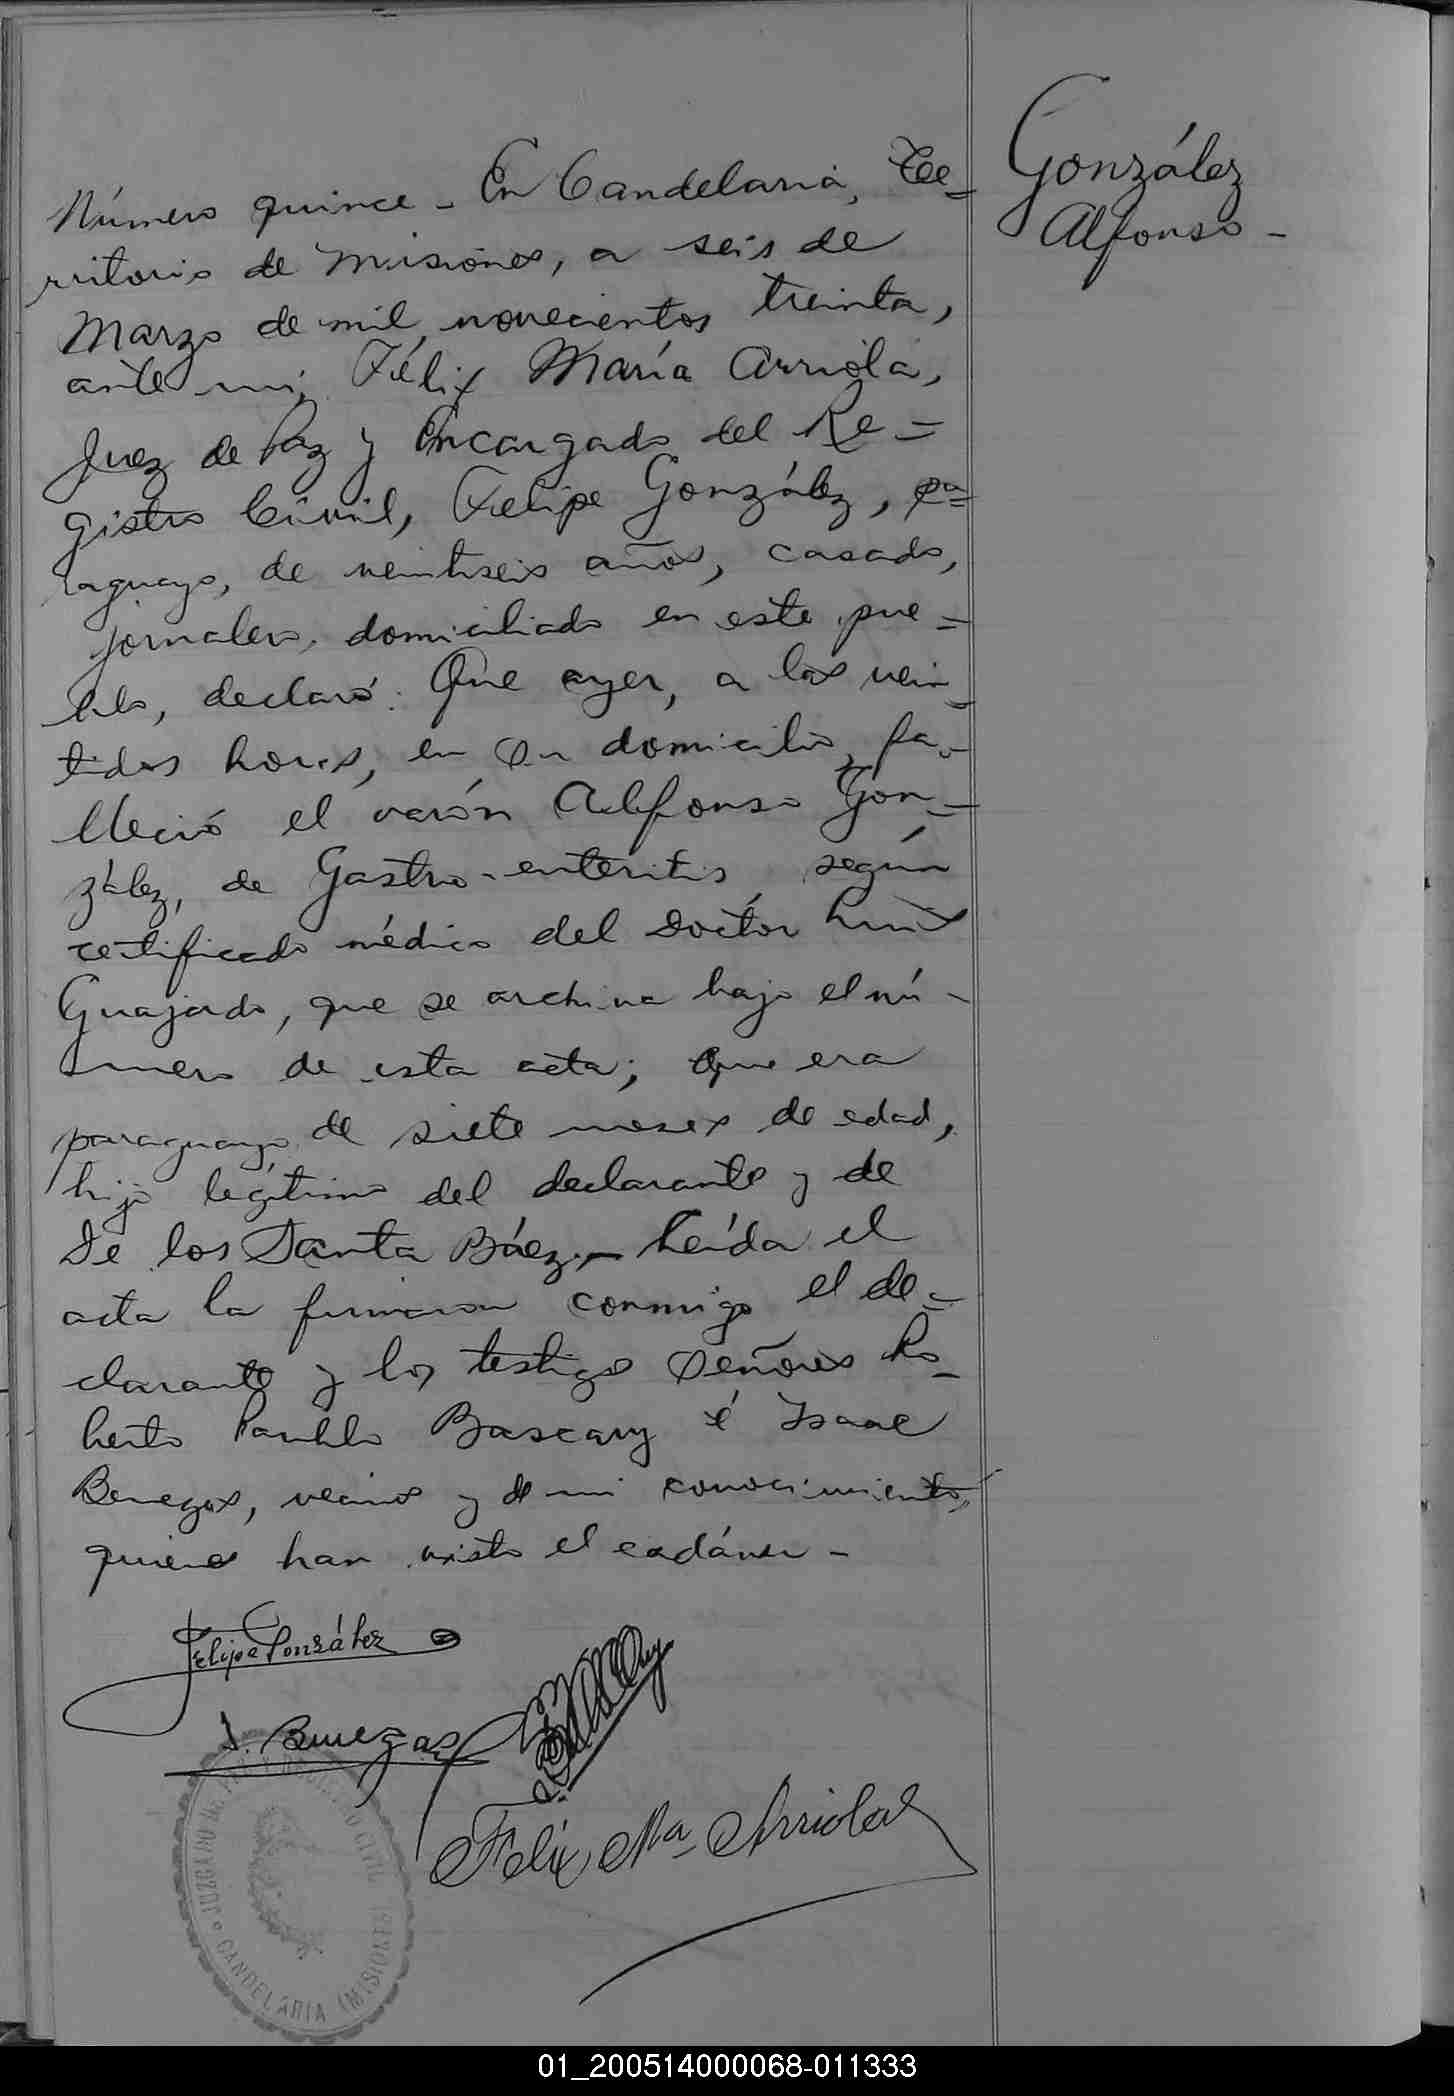 González
Alfonso -
Número quince - En Candelaria, Te=
rritorio de Misiones, a seis de
Marzo de mil novecientos treinta,
ante mí, Félix María Arriola,
Juez de Paz y Encargado del Re=
gistro Civil, Felipe González, pa=
raguayo, de veintiseis años, casado,
jornalero, domiciliado en este pue=
blo, declaró: Que ayer, a las vein=
tidos horas, en su domicilio, fa=
lleció el varón Alfonso Gon=
zález, de Gastro-enteritis, según
certificado médico del Doctor Luis
Guajardo, que se archiva bajo el nú-
mero de esta acta; que era
paraguayo, de siete meses de edad,
hijo legítimo del declarante y de
De los Santa Báez.- Leída el
acta la firmaron conmigo el de=
clarante y los testigos Señores Ro=
berto Bascary é Isaac
Benegas, vecinos y de mi conocimiento,
quienes han visto el cadáver -
Felipe González
I. Benegas
Félix Ma Arriola
JUZGADO DE PAZ Y REGISTRO CIVIL
CANDELARIA (MISIONES)
01_200514000068-011333